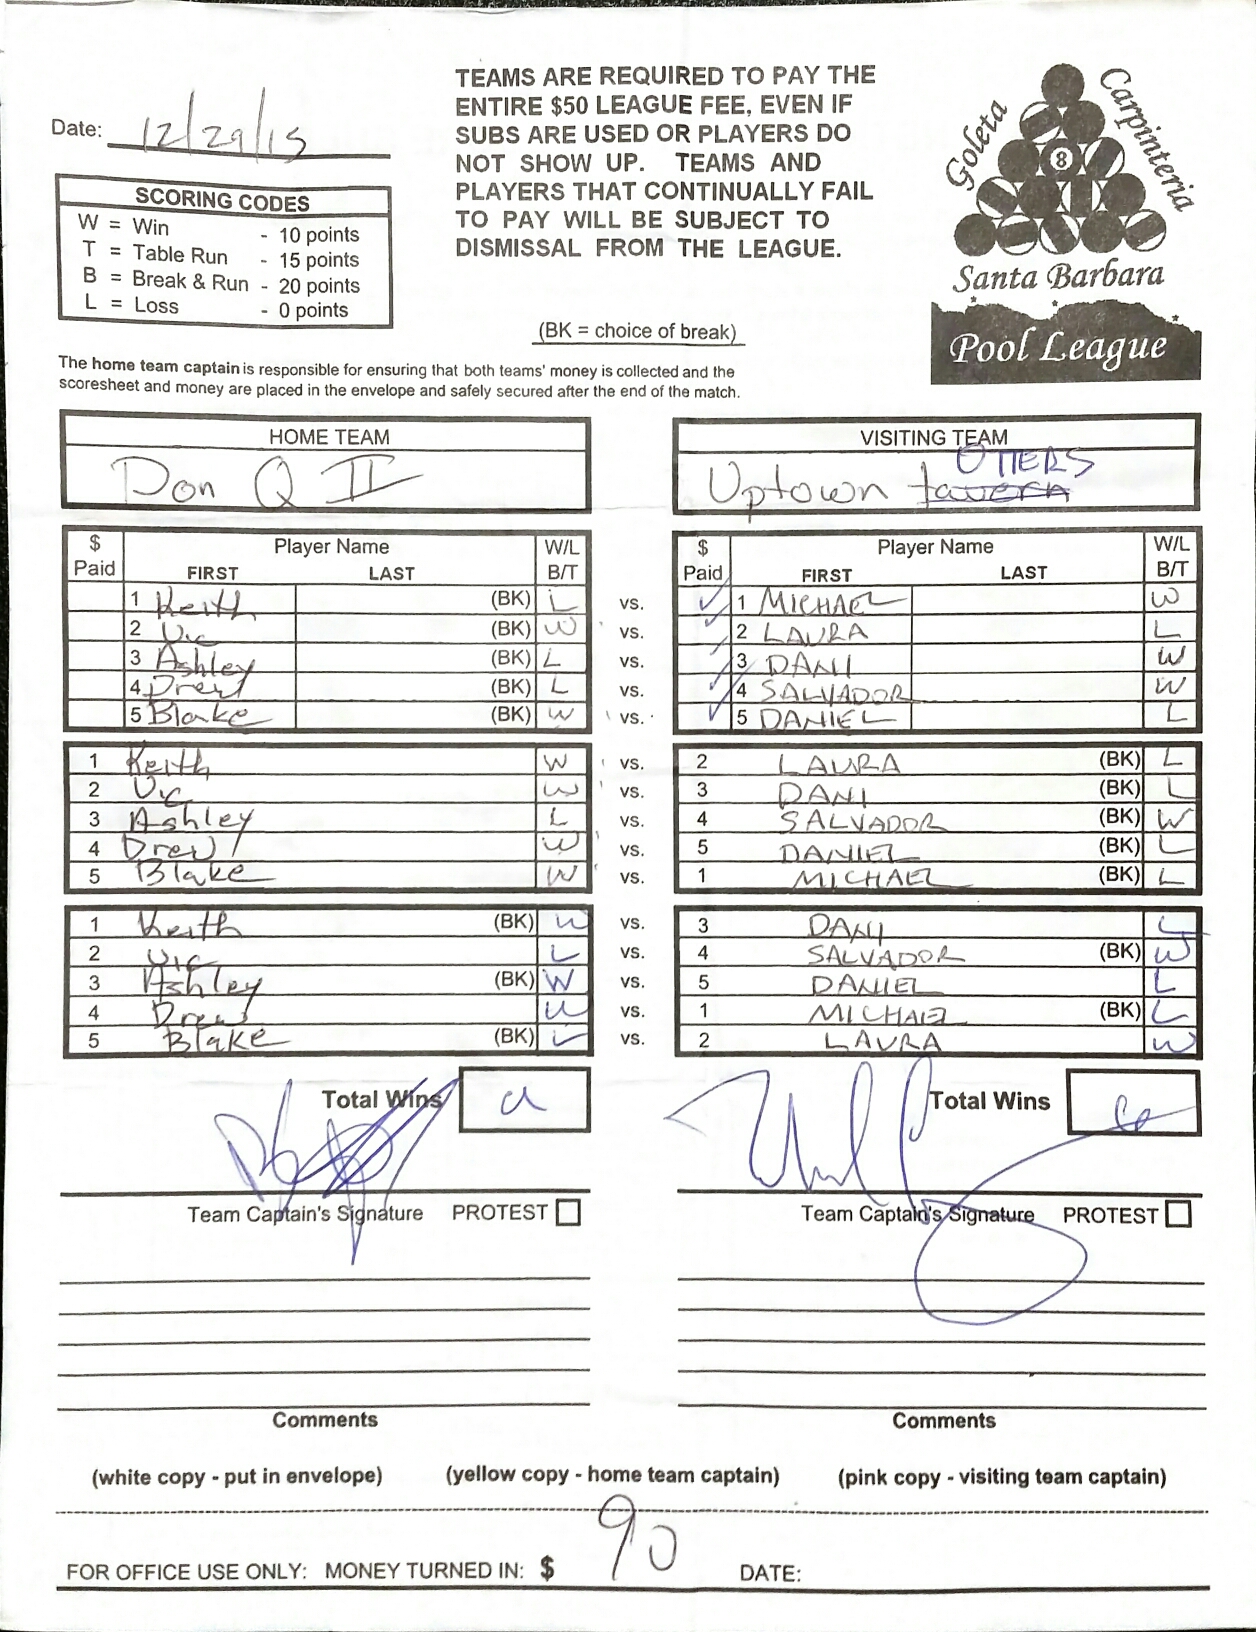 TEAMS ARE REQUIRED TO PAY THE
ENTIRE $50 LEAGUE FEE, EVEN IF
SUBS ARE USED OR PLAYERS DO
NOT SHOW UP. TEAMS AND
PLAYERS THAT CONTINUALLY FAIL
TO PAY WILL BE SUBJECT TO
DISMISSAL FROM THE LEAGUE.
Goleta
Carpinteria
8
Santa Barbara
Pool League
Date: 12/29/15
SCORING CODES
W = Win - 10 points
T = Table Run - 15 points
B = Break & Run - 20 points
L = Loss - 0 points
(BK = choice of break)
The home team captain is responsible for ensuring that both teams' money is collected and the
scoresheet and money are placed in the envelope and safely secured after the end of the match.
HOME TEAM VISITING TEAM
Don Q II Uptown OTTERS
$ Paid Player Name FIRST LAST W/L B/T $ Paid Player Name FIRST LAST W/L B/T
1 Keith (BK) L vs. 1 MICHAEL W
2 Vic (BK) W vs. 2 LAURA L
3 Ashley (BK) L vs. 3 DANI W
4 Drew (BK) L vs. 4 SALVADOR W
5 Blake (BK) W vs. 5 DANIEL L
1 Keith W vs. 2 LAURA (BK) L
2 Vic W vs. 3 DANI (BK) L
3 Ashley L vs. 4 SALVADOR (BK) W
4 Drew W vs. 5 DANIEL (BK) L
5 Blake W vs. 1 MICHAEL (BK) L
1 Keith (BK) W vs. 3 DANI L
2 Vic L vs. 4 SALVADOR (BK) W
3 Ashley (BK) W vs. 5 DANIEL L
4 Drew W vs. 1 MICHAEL (BK) L
5 Blake (BK) L vs. 2 LAURA W
Total Wins 9 Total Wins 6
Team Captain's Signature PROTEST Team Captain's Signature PROTEST
Comments Comments
(white copy - put in envelope) (yellow copy - home team captain) (pink copy - visiting team captain)
FOR OFFICE USE ONLY: MONEY TURNED IN: $ 90 DATE: